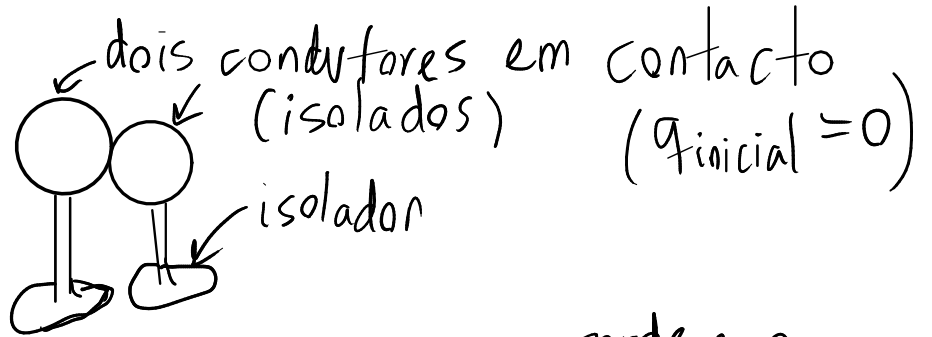 dois condutores em contacto
(isolados)
(q inicial = 0)
isolador